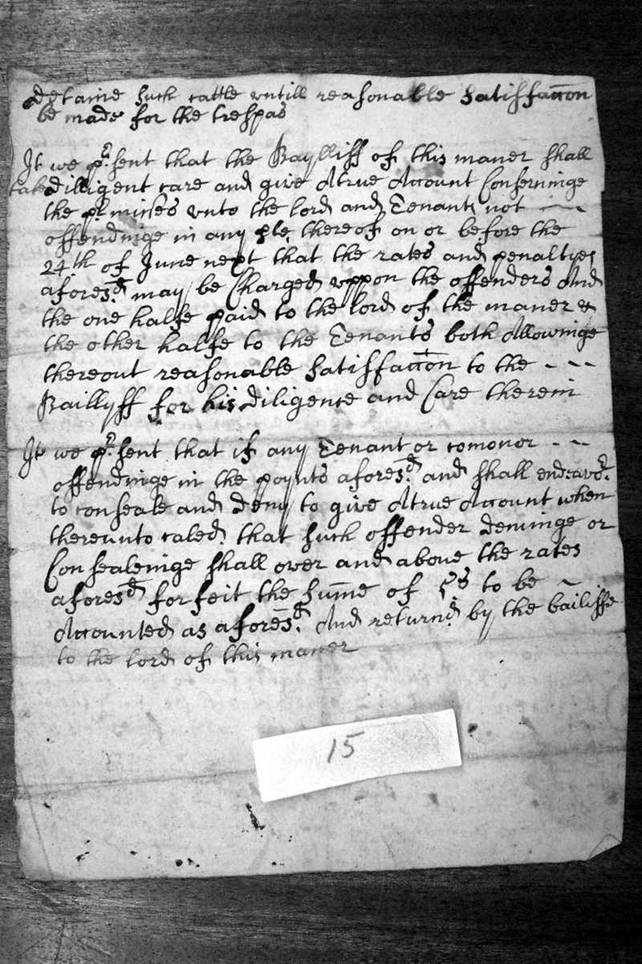 detaine such cattle untill reasonable Satisfaccon
be made for the trespas
It we p'sent that the Baylliff of this maner shall
take diligent care and give A true Account Conserninge
the p'mises unto the lord and Tenants not
offendinge in any pte thereof on or before the
24th of June next that the rates and penaltyes
aforesd may be Charged uppon the offenders And
the one halfe paid to the lord of the maner &
the other halfe to the Tenants both Allowinge
thereout reasonable Satisfaccon to the - - -
Baillyff for his diligense and Care therein
It we p'sent that if any Tenant or comonor - - -
offendinge in the poynts aforesd and shall endeavor
to conseale and deny to give A true Account when
thereunto caled that such offender deninge or
Consealeinge shall over and above the rates
aforesd forfeit the sume of 5s to be
Accounted as aforesd And returnd by the bailiffe
to the lord of this maner
15